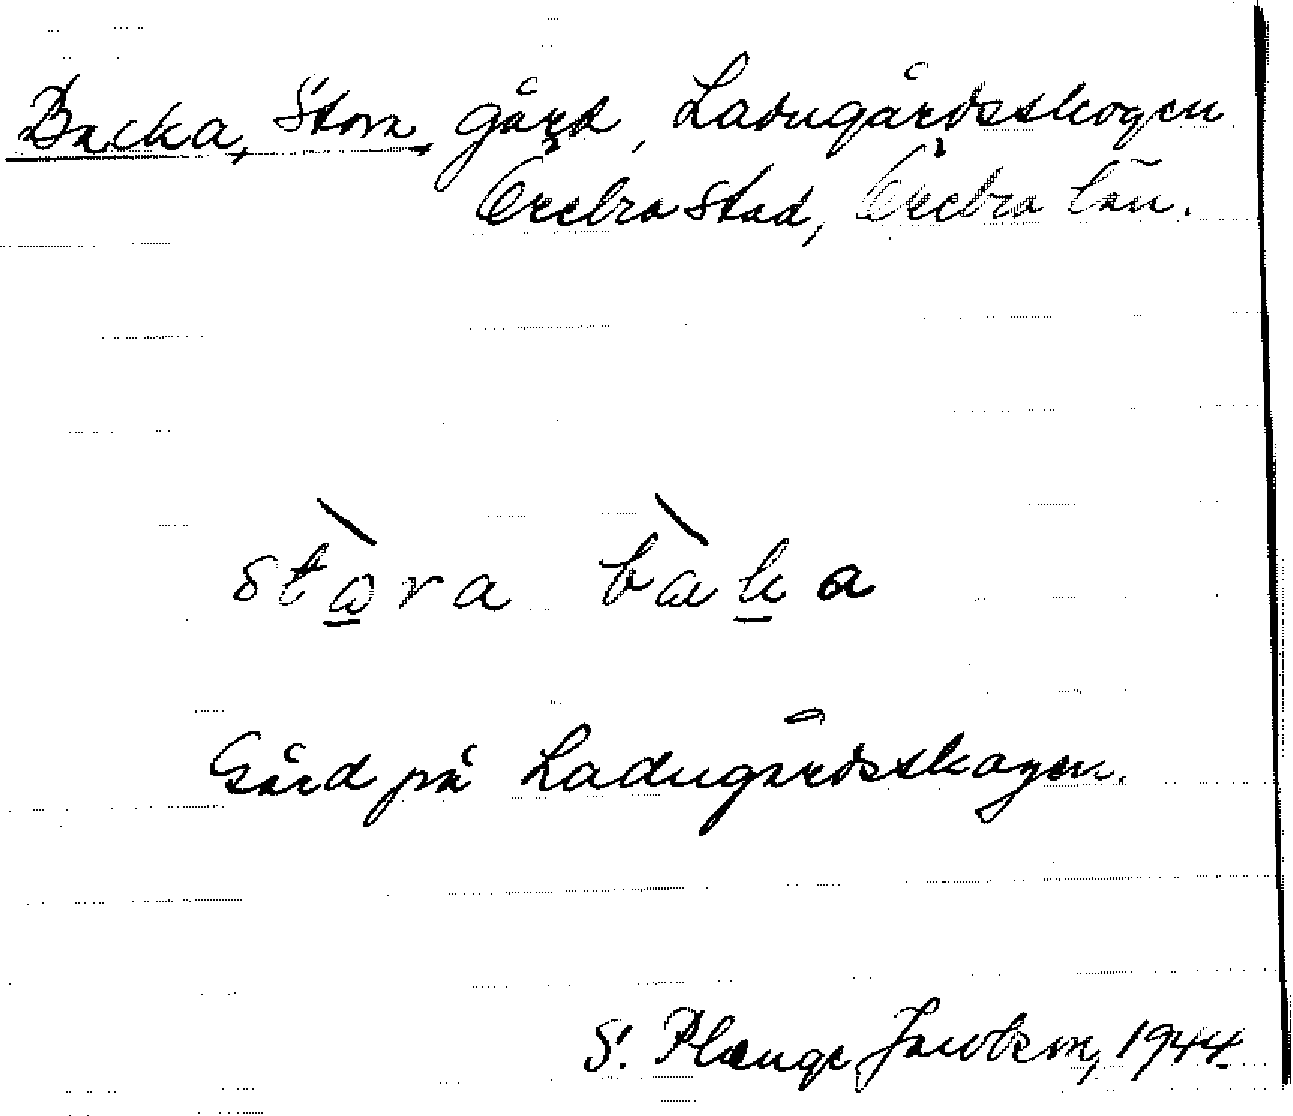 Backa, Stora, gård, Ladugårdsskogen
Örebro stad, Örebro län.
stωra baka
Gård på Ladugårdsskogen.
S. Plænge Jacobson, 1944.